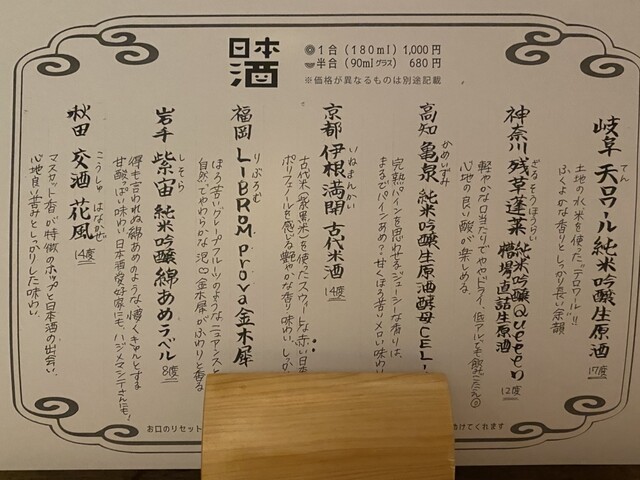 日本
酒
◎1台(180ml) 1,000円
半台(90mlグラス) 680円
※価格が異なるものは別途記載
岐阜 天ロワール 純米吟醸生原酒 17度
てん
土地の水、米を使った"テロワール"!!
ふくよかな香りとしっかり長い余韻
神奈川 残草蓬莱 純米吟醸Queeen
ざるそうほうらい
槽場直詰生原酒 12度
軽やかな口当たりでややドライ、低アルでも飲みごたえ◎
心地の良い酸が楽しめる。
高知 亀泉 純米吟醸生原酒酵母CEL-
かめいずみ
完熟パインを思わせるジューシーな香りは、
まるでパインあめ?甘くほろ苦いメロい味わい
京都 伊根満開 古代米酒 14度
いねまんかい
古代米(紫黒米)を使ったスウィートな赤い日本
ポリフェノールを感じる艶やかな香り、味わい。しっか
福岡 LIBROM prova金木犀
りぶろむ
ほろ苦いグレープフルーツのようなニュアンスと
自然でやわらかな泡♡金木犀がふわりと香る
岩手 紫宙 純米吟醸 綿あめラベル 8度
しそら
得も言われぬ綿あめのような儚くきゅんとする
甘酸っぱい味わい。日本酒愛好家にも、ハジメマシテーさんにも!
秋田 交酒 花風 14度
こうしゅ はなかぜ
マスカット香が特徴のホップと日本酒の出会い。
心地良い苦みとしっかりした味わい。
お口のリセット
けてくれます